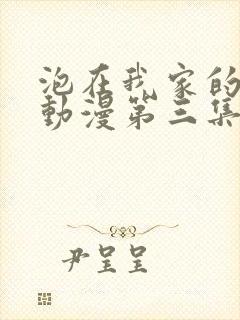 泡在我家的
動漫第三集
尹呈呈